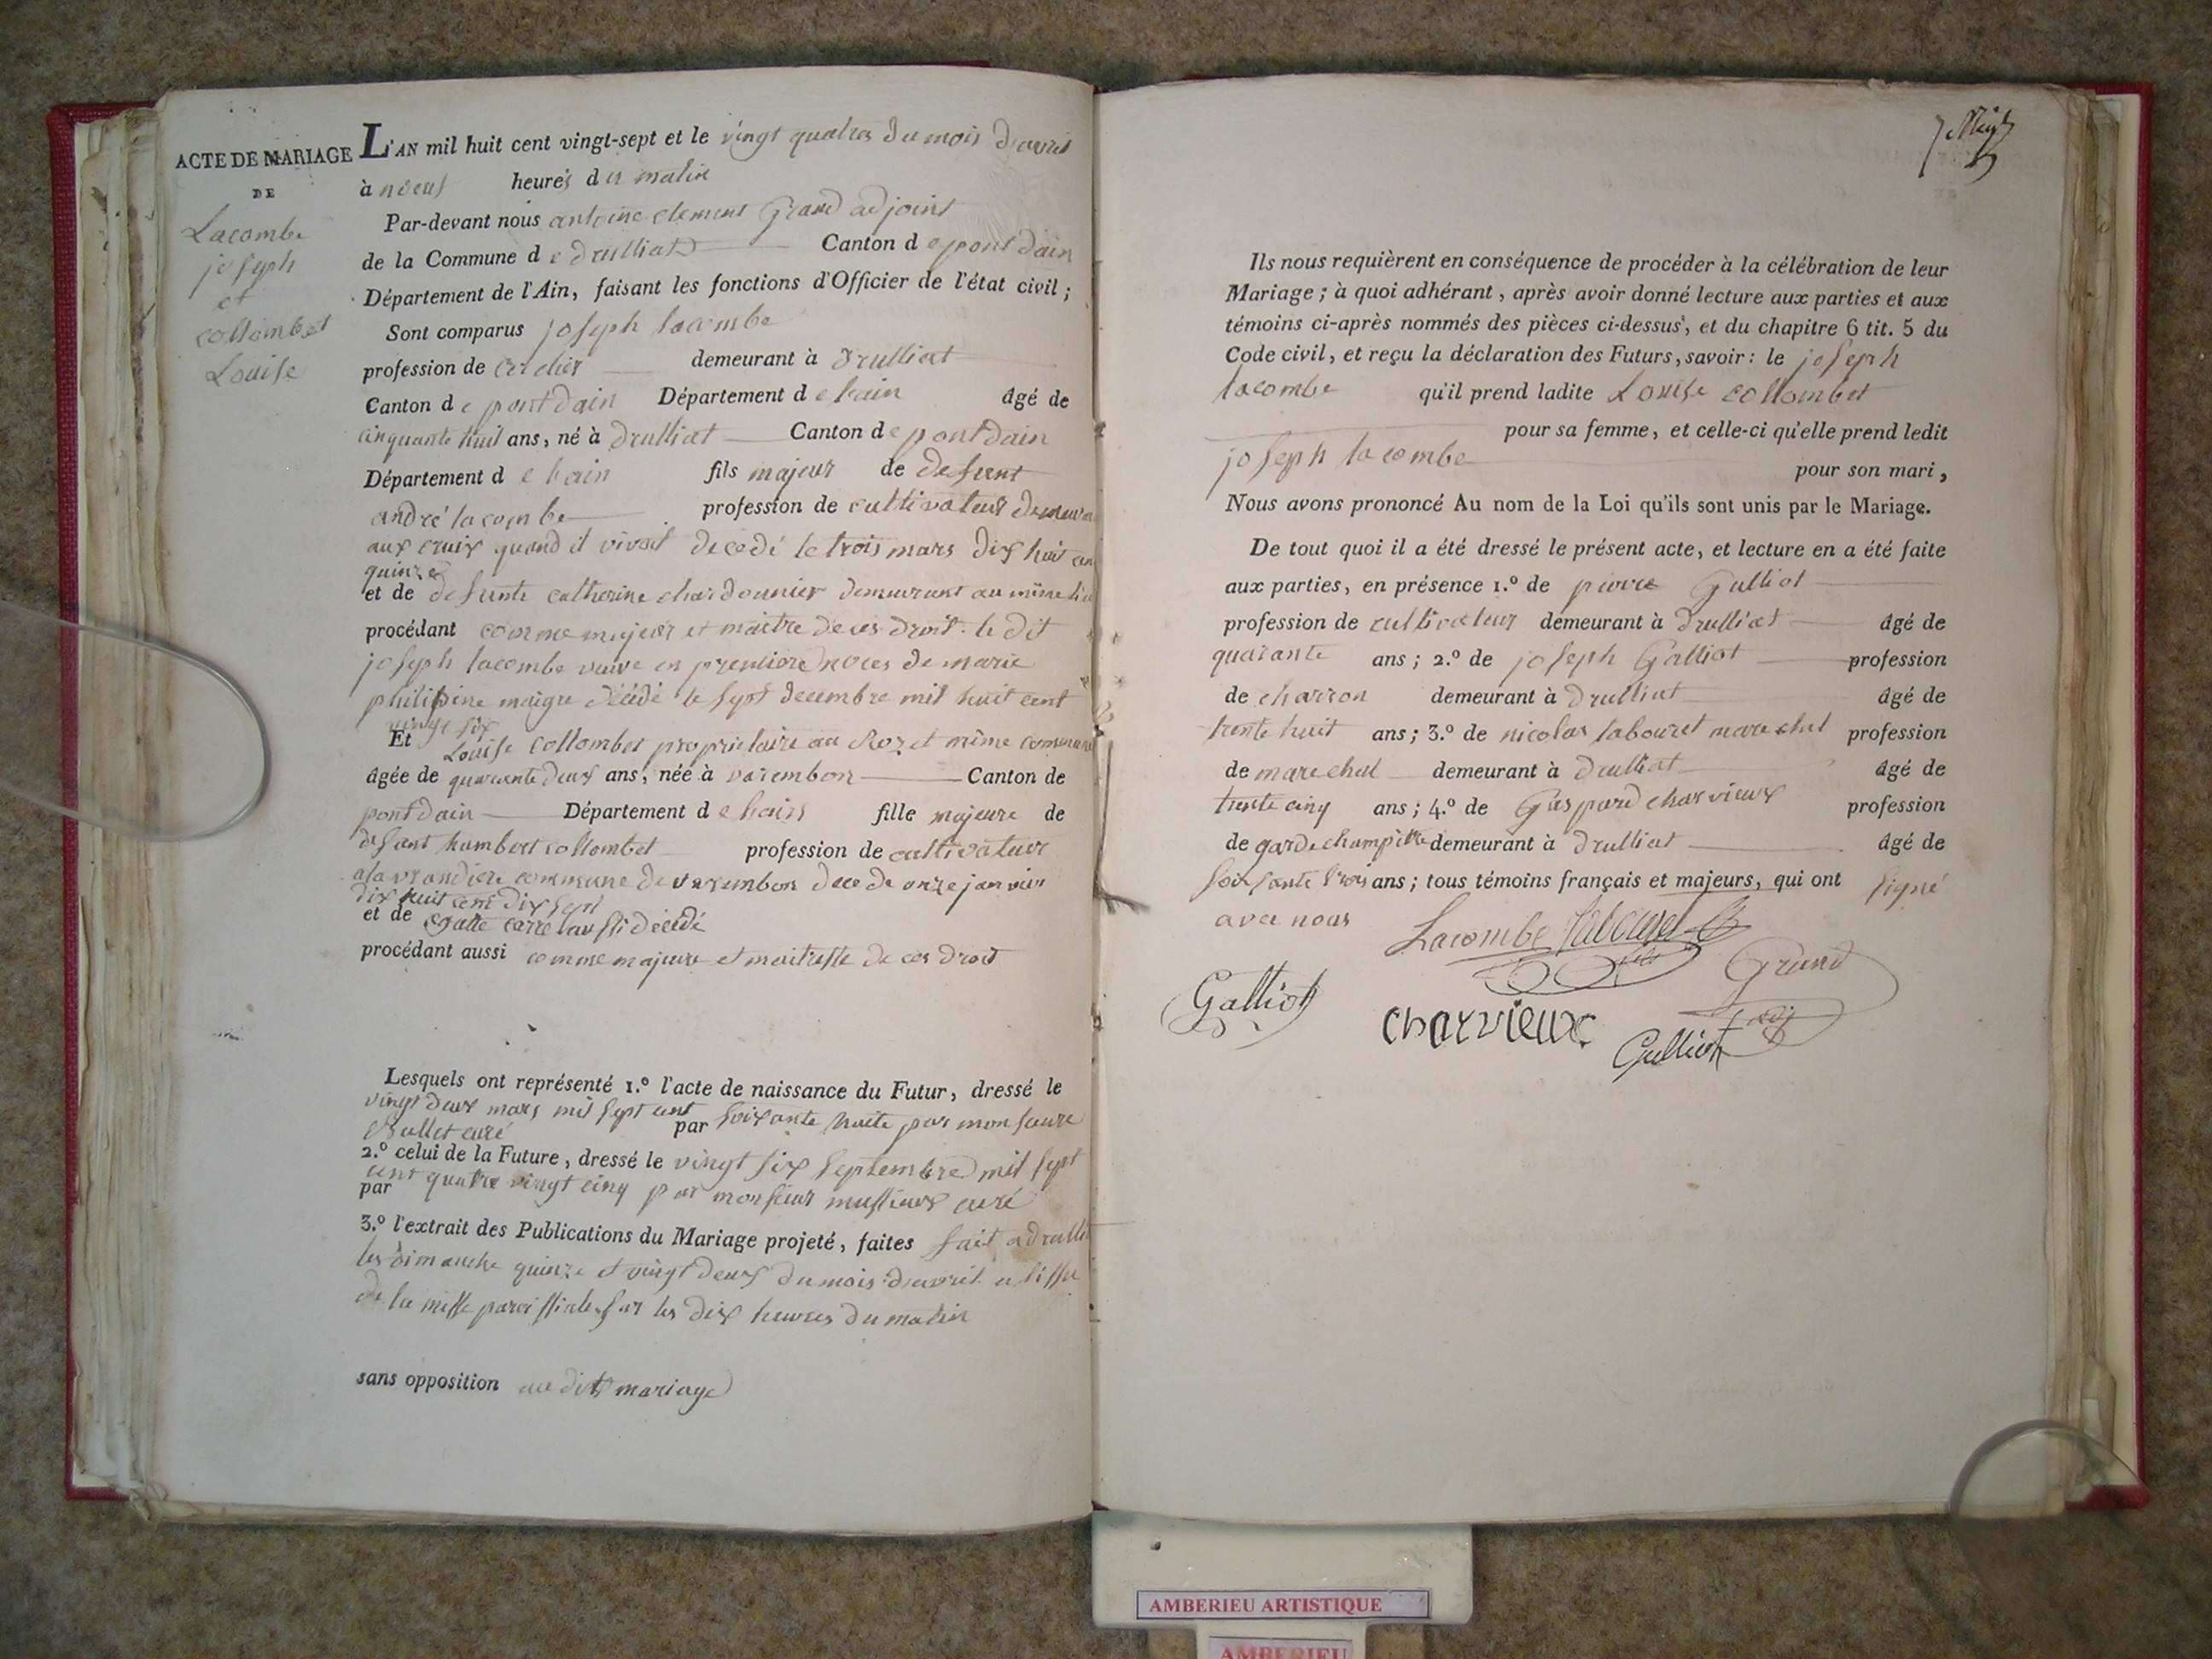 ACTE DE MARIAGE
DE
Lacombe
joseph
et
collombet
Louise
L'AN mil huit cent vingt-sept et le vingt quatre du mois d'avril
à neuf heures du matin
Par-devant nous antoine clement Grand adjoint
de la Commune de drulliat Canton de pont dain
Département de l'Ain, faisant les fonctions d'Officier de l'état civil ;
Sont comparus joseph lacombe
profession de demeurant à drulliat
Canton de pont dain Département de lain âgé de
cinquante huit ans, né à drulliat Canton de pont dain
Département de lain fils majeur de defunt
andré lacombe profession de cultivateur
aux quand il vivoit decedé le trois mars dix huit cen
quinze
et de defunte catherine chardonnier demeurant au même lieu
procédant comme majeur et maitre de ces droit. le dit
joseph lacombe veuve en premiere noces de marie
philipine maigre décédé le sept decembre mil huit cent
vingt six
Et Louise collombet propriétaire au Rozet même commune
âgée de quarente deux ans, née à varembon Canton de
pont dain Département de lain fille majeure de
defunt humbert collombet profession de cultivateur
commune de varembon decede onze janvier
dix huit cent dix sept
et de aussi décédé
procédant aussi comme majeure et maitresse de ces droit
Lesquels ont représenté 1.º l'acte de naissance du Futur, dressé le
vingt deux mars mil sept cent
par soixante huite par monsieure
Bullet curé
2.º celui de la Future, dressé le vingt six septembre mil sept
cent quatre vingt cinq par monsieur curé
par
3.º l'extrait des Publications du Mariage projeté, faites fait a drullit
les dimanche quinze et vingt deux du mois d'avril a lissu
de la messe paroissiale sur les dix heures du matin
sans opposition au dit mariage
Ils nous requièrent en conséquence de procéder à la célébration de leur
Mariage ; à quoi adhérant, après avoir donné lecture aux parties et aux
témoins ci-après nommés des pièces ci-dessus, et du chapitre 6 tit. 5 du
Code civil, et reçu la déclaration des Futurs, savoir : le joseph
lacombe qu'il prend ladite Louise collombet
pour sa femme, et celle-ci qu'elle prend ledit
joseph lacombe pour son mari,
Nous avons prononcé Au nom de la Loi qu'ils sont unis par le Mariage.
De tout quoi il a été dressé le présent acte, et lecture en a été faite
aux parties, en présence 1.º de pierre Galliot
profession de cultivateur demeurant à drulliat âgé de
quarante ans ; 2.º de joseph Galliot profession
de charron demeurant à drulliat âgé de
trente huit ans ; 3.º de nicolas labouret marechal profession
de marechal demeurant à drulliat âgé de
trente cinq ans ; 4.º de Gaspard charvieux profession
de garde champitre demeurant à drulliat âgé de
soixante trois ans ; tous témoins français et majeurs, qui ont signé
avec nous
Lacombe Labouret
Grand
adj
Galliot
charvieux
Galliot
AMBERIEU ARTISTIQUE
AMBERIEU